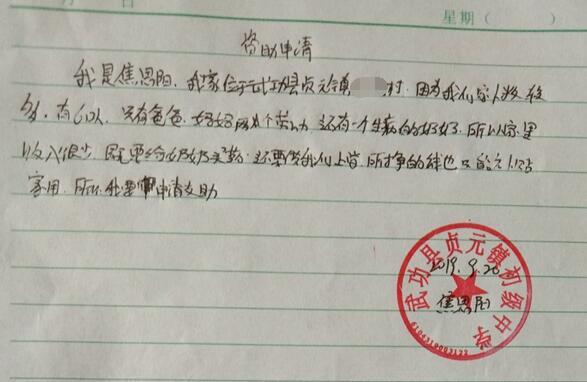 日
星期（ ）
资助申请
我是焦思阳，我家位于武功县贞元镇 村，因为我们家人数较
多，有6口人，只有爸爸、妈妈两个劳力，还有一个生病的奶奶，所以家里
收入很少，既要给奶奶买药，还要供我们上学，所挣的钱也只能够
家用，所以我要申请支助
2019.9.20
焦思阳
武功县贞元镇初级中学
6104310003122